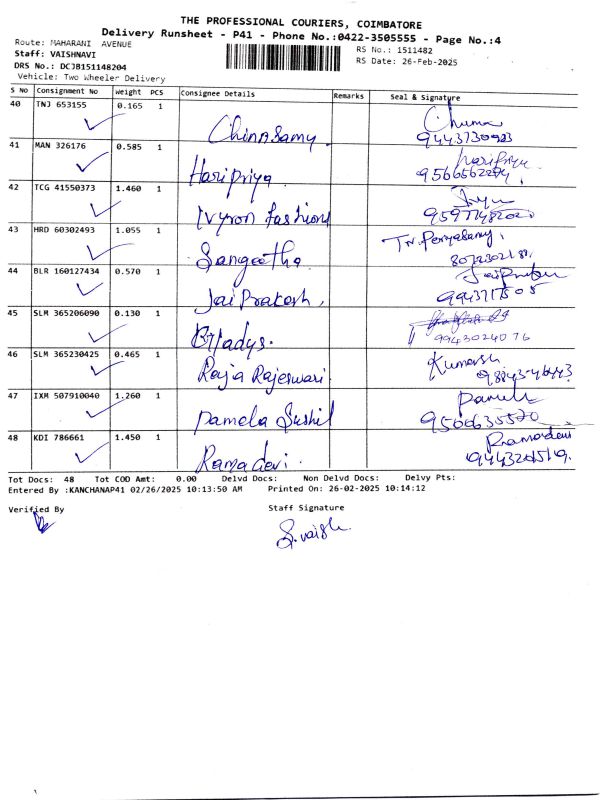 THE PROFESSIONAL COURIERS, COIMBATORE
Delivery Runsheet - P41 - Phone No.:0422-3505555 - Page No.:4
Route: MAHARANI AVENUE
RS No.: 1511482
Staff: VAISHNAVI
RS Date: 26-Feb-2025
DRS No.: DCJB151148204
Vehicle: Two Wheeler Delivery
S No Consignment No Weight PCS Consignee Details Remarks Seal & Signature
40 TNJ 653155 0.165 1 Chinnsamy
41 MAN 326176 0.585 1 Haripriya. Haripriya
42 TCG 41550373 1.460 1 Ivyron fashions
43 HRD 60302493 1.055 1 Sangeetha
44 BLR 160127434 0.570 1 Jai Prakash,
45 SLM 365206090 0.130 1 99430240 76
46 SLM 365230425 0.465 1 Raja Rajeswari. Kumaresh
47 IXM 507910040 1.260 1 Pamela Sushil
48 KDI 786661 1.450 1 Rama devi. Ramadevi
Tot Docs: 48 Tot COD Amt: 0.00 Delvd Docs: Non Delvd Docs: Delvy Pts:
Entered By :KANCHANAP41 02/26/2025 10:13:50 AM Printed On: 26-02-2025 10:14:12
Verified By Staff Signature
S.vaish